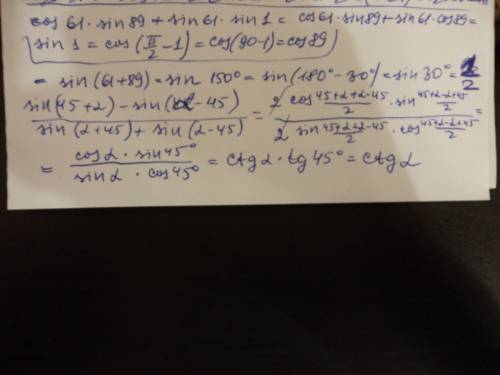 cos 61 · sin 89 + sin 61 · sin 1 = cos 61 · sin 89 + sin 61 · cos 89 =
sin 1 = cos (π/2 - 1) = cos (90-1) = cos 89
= sin (61+89) = sin 150° = sin (180° - 30°) = sin 30° = 1/2
(sin(45+α) - sin(α-45))/(sin(α+45) + sin(α-45)) = (2 cos (45+α+α-45)/2 · sin (45+α-α+45)/2)/(2 sin (45+α+α-45)/2 · cos (45+α-α+45)/2) =
= (cos α · sin 45°)/(sin α · cos 45°) = ctg α · tg 45° = ctg α